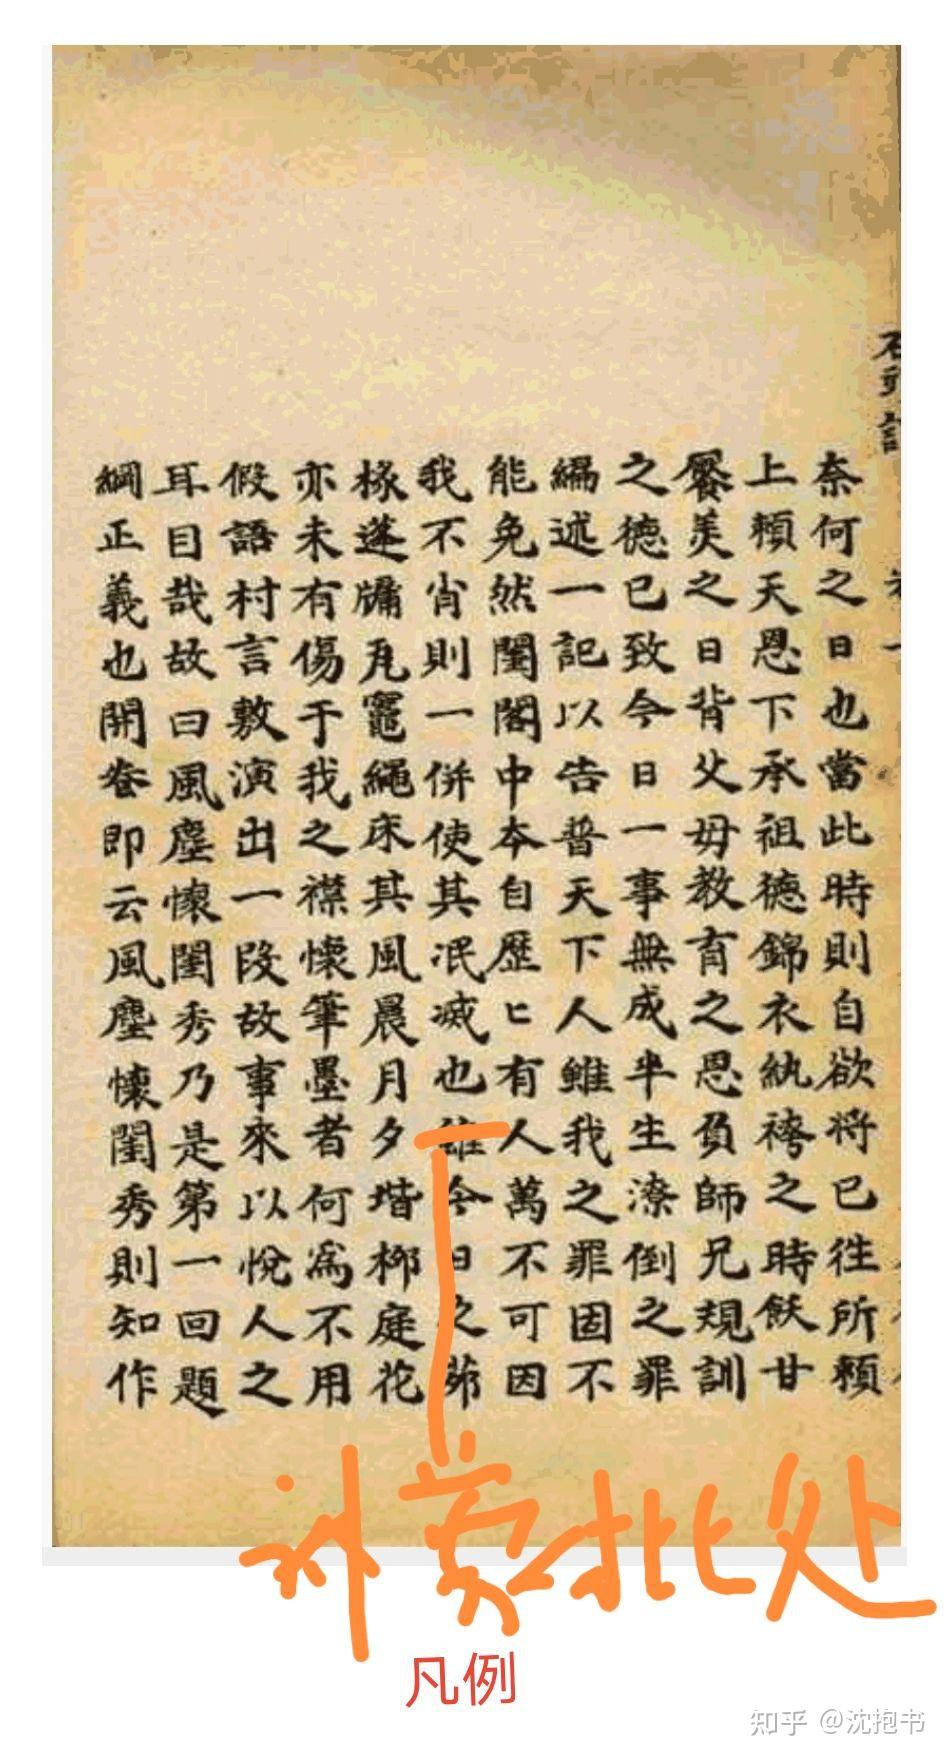 石頭記 卷一
奈何之日也當此時則自欲將已徃所賴
上賴天恩下承祖德錦衣紈袴之時飫甘
饜美之日背父母教育之恩負師兄規訓
之德已致今日一事無成半生潦倒之罪
編述一記以告普天下人雖我之罪固不
能免然閨閣中本自歷匕有人萬不可因
我不肖則一併使其泯滅也雖今日之茆
椽蓬牖瓦竈繩床其風晨月夕堦柳庭花
亦未有傷于我之襟懷筆墨者何為不用
假語村言敷演出一段故事來以悅人之
耳目哉故曰風塵懷閨秀乃是第一回題
綱正義也開卷即云風塵懷閨秀則知作
补蒙批处
凡例
知乎 @沈抱书